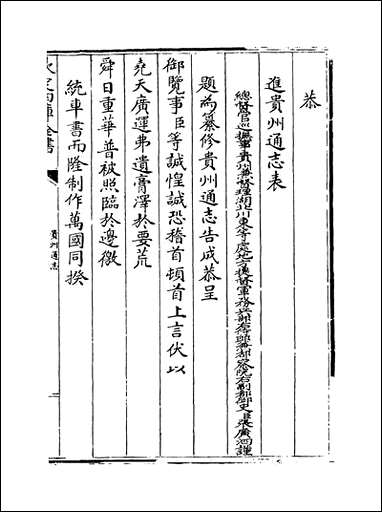 恭
進貴州通志表
總督官巡撫事貴州兼督理湖北川東等處地方
張廣泗謹
題為纂修貴州通志告成恭呈
御覽事臣等誠惶誠恐稽首頓首上言伏以
堯天廣運弗遺膏澤於要荒
舜日重華普被照臨於邊徼
統車書而隆制作萬國同揆
欽定四庫全書
貴州通志